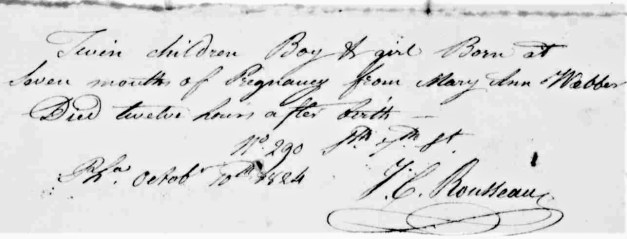 Twin children Boy & girl Born at
Seven months of Pregnancy from Mary Ann Webber
Died twelve hours after birth —
No. 290 Sth. 7th St.
Pha. Octobr 10th 1824
J. C. Rousseau